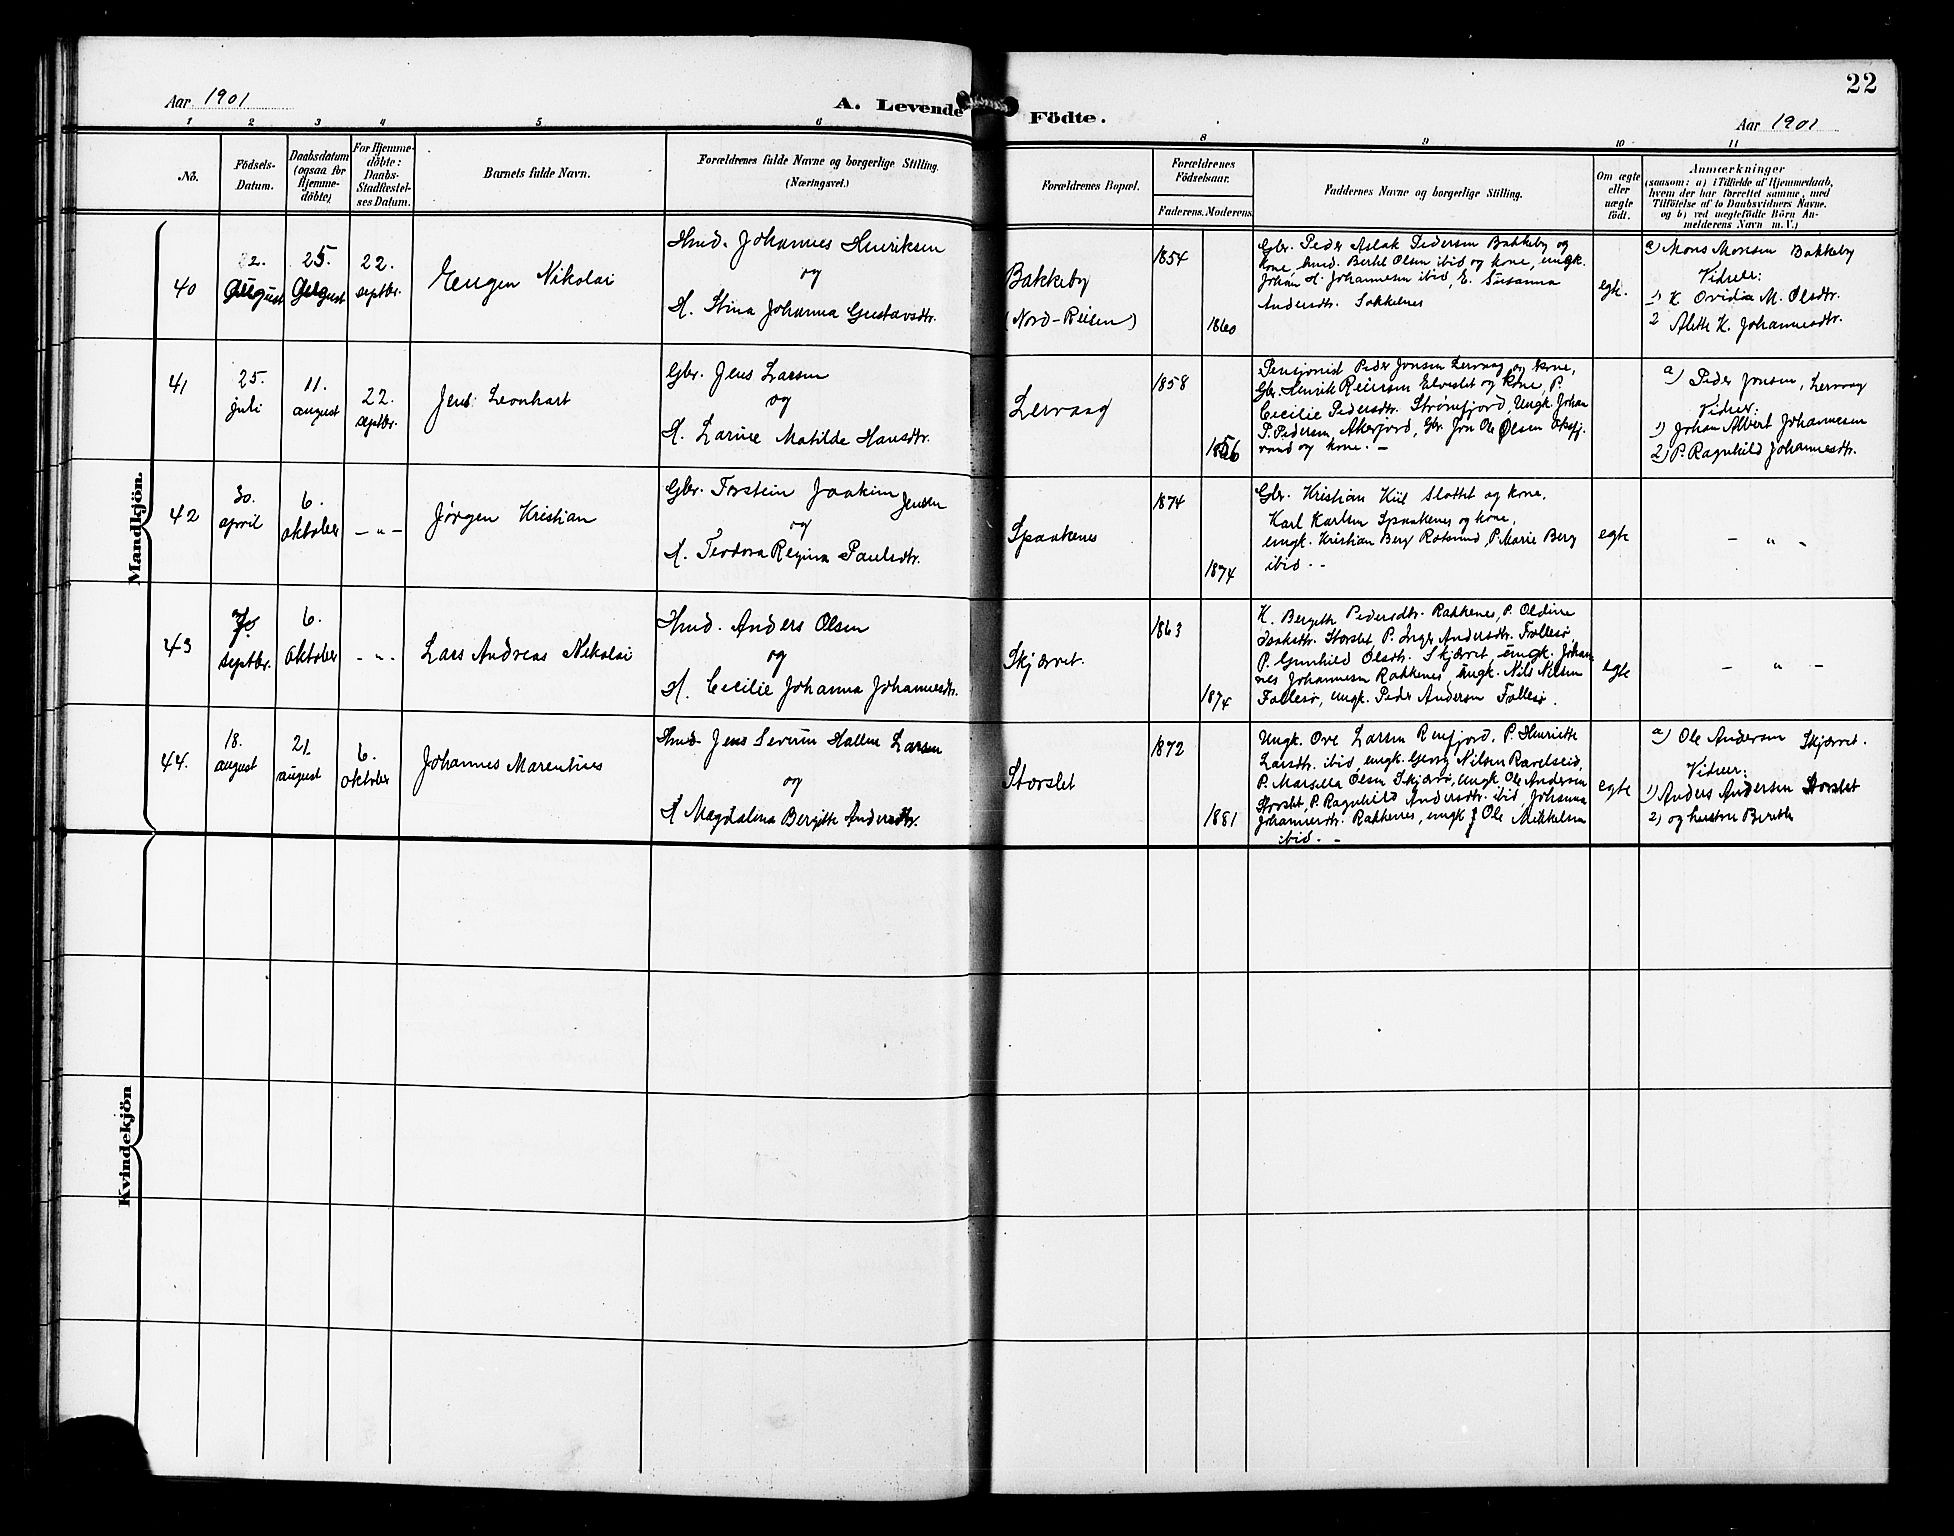 22
Aar 1901
A. Levende Födte.
Aar 1901
1 2 3 4 5 6 8 9 10 11
No.
Födsels-
Datum.
Daabsdatum
(ogsaa for
Hjemme-
döbte)
For Hjemme-
döbte:
Daabs-
Stadfæstel-
ses Datum.
Barnets fulde Navn.
Forældrenes fulde Navne og borgerlige Stilling.
(Næringsvei.)
Forældrenes Bopæl.
Forældrenes
Födselsaar.
Faderens. Moderens.
Faddernes Navne og borgerlige Stilling.
Om ægte
eller
uægte
født.
Anmærkninger
(saasom: a) i Tilfælde af Hjemmedaab,
hvem der har forrettet samme, med
Tilföielse af to Daabsvidners Navne.
og b) ved uegtefödte Börn An-
melderens Navn m. V.)
Mandkjön.
40
22.
august
25.
august
22.
septbr.
Eugen Nikolai
Hmd. Johannes Henriksen
og
H. Stina Johanna Gustavsdtr.
Bakkeby
(Nord-Reisen)
1854
1860
Gbr. Peder Aslak Pedersen Bakkeby og
kone, hmd. Bertel Olsen ibid og kone, ungk.
Johan A. Johannesen ibid, E. Susanna
Andersdtr. Sokkelnes
egte.
a) Mons Monsen Bakkeby
Vidner:
1) K Ovidia M. Olsdtr.
2 Alette K. Johannesdtr.
41
25.
juli
11.
august
22.
septbr.
Jens Leonhart
Gbr. Jens Larsen
og
H. Larine Matilde Hansdtr.
Lervaag
1858
1856
Pensjonist Peder Jonsen Lervaag og kone,
Gbr. Henrik Reiersen Elvestet og kone, P.
Cecilie Pedersdtr. Strømfjord, Ungk. Johan
P. Pedersen, Akerfjord, Gbr. Jon Ole Olsen Oksfj.
vand og kone. -
a) Peder Jonsen, Lervaag
Vidner:
1) Johan Albert Johannesen
2) P. Ragnhild Johannesdtr.
42
30.
april
6.
oktober
- " -
Jørgen Kristian
Gbr. Torstein Joakim Jensen
og
H. Teodora Regina Paulsdtr.
Spaakenes
1874
1874
Gbr. Kristian Kiil Slottet og kone,
Karl Karlsen Spaakenes og kone,
ungk. Kristian Berg Rotsund, P. Marie Berg
ibid. -
egte
- " -
43
septbr.
6.
oktober
- " -
Lars Andreas Nikolai
Hmd. Anders Olsen
og
H. Cecilie Johanna Johannesdtr.
Skjærvet.
1863
1874
K. Bergith Pedersdtr. Rakkenes, P. Oldine
Isaksdtr. Storslet P. Inger Andersdtr. Follesø,
P. Gunhild Olsdtr. Skjærvet, ungk. Johan
nes Johannesen Rakkenes, ungk. Nils Nilsen
Follesø, ungk. Peder Andersen Follesø.
egte
- " -
44.
18.
august
21.
august
6.
oktober
Johannes Marentius
Hmd. Jens Severin Hallen Larsen
og
H Magdalena Bergitte Andersdtr.
Storslet
1872
1881
Ungk. Ove Larsen Reinfjord. P. Henriette
Larsdtr. ibid, ungk. Georg Nilsen Ravelseid,
P. Marsella Olsen Skjærvø, ungk. Ole Andersen
Storslet, P. Ragnhild Andersdtr. ibid, Johanna
Johannesdtr. Rakkenes, ungk J Ole Mikkelsen
ibid. -
egte
a) Ole Andersen Skjærvet.
Vidner:
1) Anders Andersen Storslet
2) og hustru Berethe
Kvindekjön